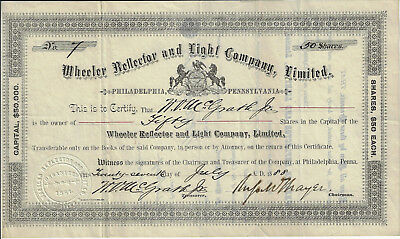 No. 7
50 Shares.
Wheeler Reflector and Light Company, Limited.
PHILADELPHIA, PENNSYLVANIA
This is to Certify, That W.D. McGrath Jr.
is the owner of Fifty Shares in the Capital of the
Wheeler Reflector and Light Company, Limited,
Transferable only on the Books of the said Company, in person or by Attorney, on the return of this Certificate.
Witness the signatures of the Chairman and Treasurer of the Company, at Philadelphia, Penna.
Twenty seventh day of July A.D. 1888
W.D. McGrath Jr.
Treasurer.
Thayer
Chairman.
CAPITAL, $50,000.
SHARES, $50 EACH.